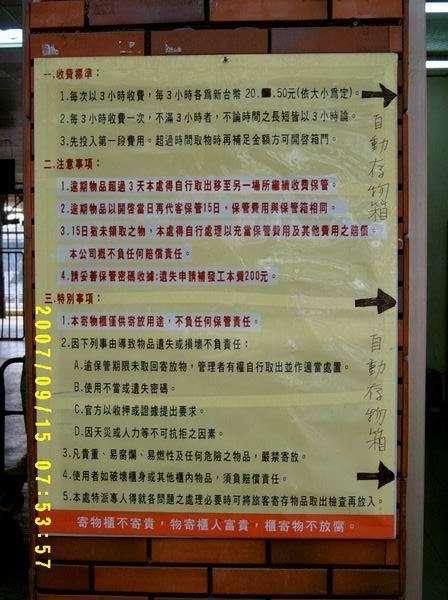 一.收費標準：
1.每次以3小時收費，每3小時各為新台幣 20.50元(依大小為定)。
2.每3小時收費一次，不滿3小時者，不論時間之長短皆以3小時論。
3.先投入第一段費用。超過時間取物時再補足金額方可開啓箱門。
二.注意事項：
1.逾期物品超過3天本處得自行取出移至另一場所繼續收費保管。
2.逾期物品以開啓當日再代客保管15日，保管費用與保管箱相同。
3.15日猶未領取之物，本處得自行處理以充當保管費用及其他費用之賠償。
本公司概不負任何賠償責任。
4.請妥善保管密碼收據:遺失申請補發工本費200元。
三.特別事項：
1.本寄物櫃僅供寄放用途，不負任何保管責任。
2.因下列事由導致物品遺失或損壞不負責任：
A.逾保管期限未取回寄放物，管理者有權自行取出並作適當處置。
B.使用不當或遺失密碼。
C.官方以收押或證據提出要求。
D.因天災或人力等不可抗拒之因素。
3.凡貴重、易腐爛、易燃性及任何危險之物品，嚴禁寄放。
4.使用者如破壞櫃身或其他櫃內物品，須負賠償責任。
5.本處特派專人得就各問題之處理必要時可將旅客寄存物品取出檢查再放入。
寄物櫃不寄貴，物寄櫃人富貴，櫃寄物不放窩。
自動存物箱
自動存物箱
2007/09/15 07:53:57